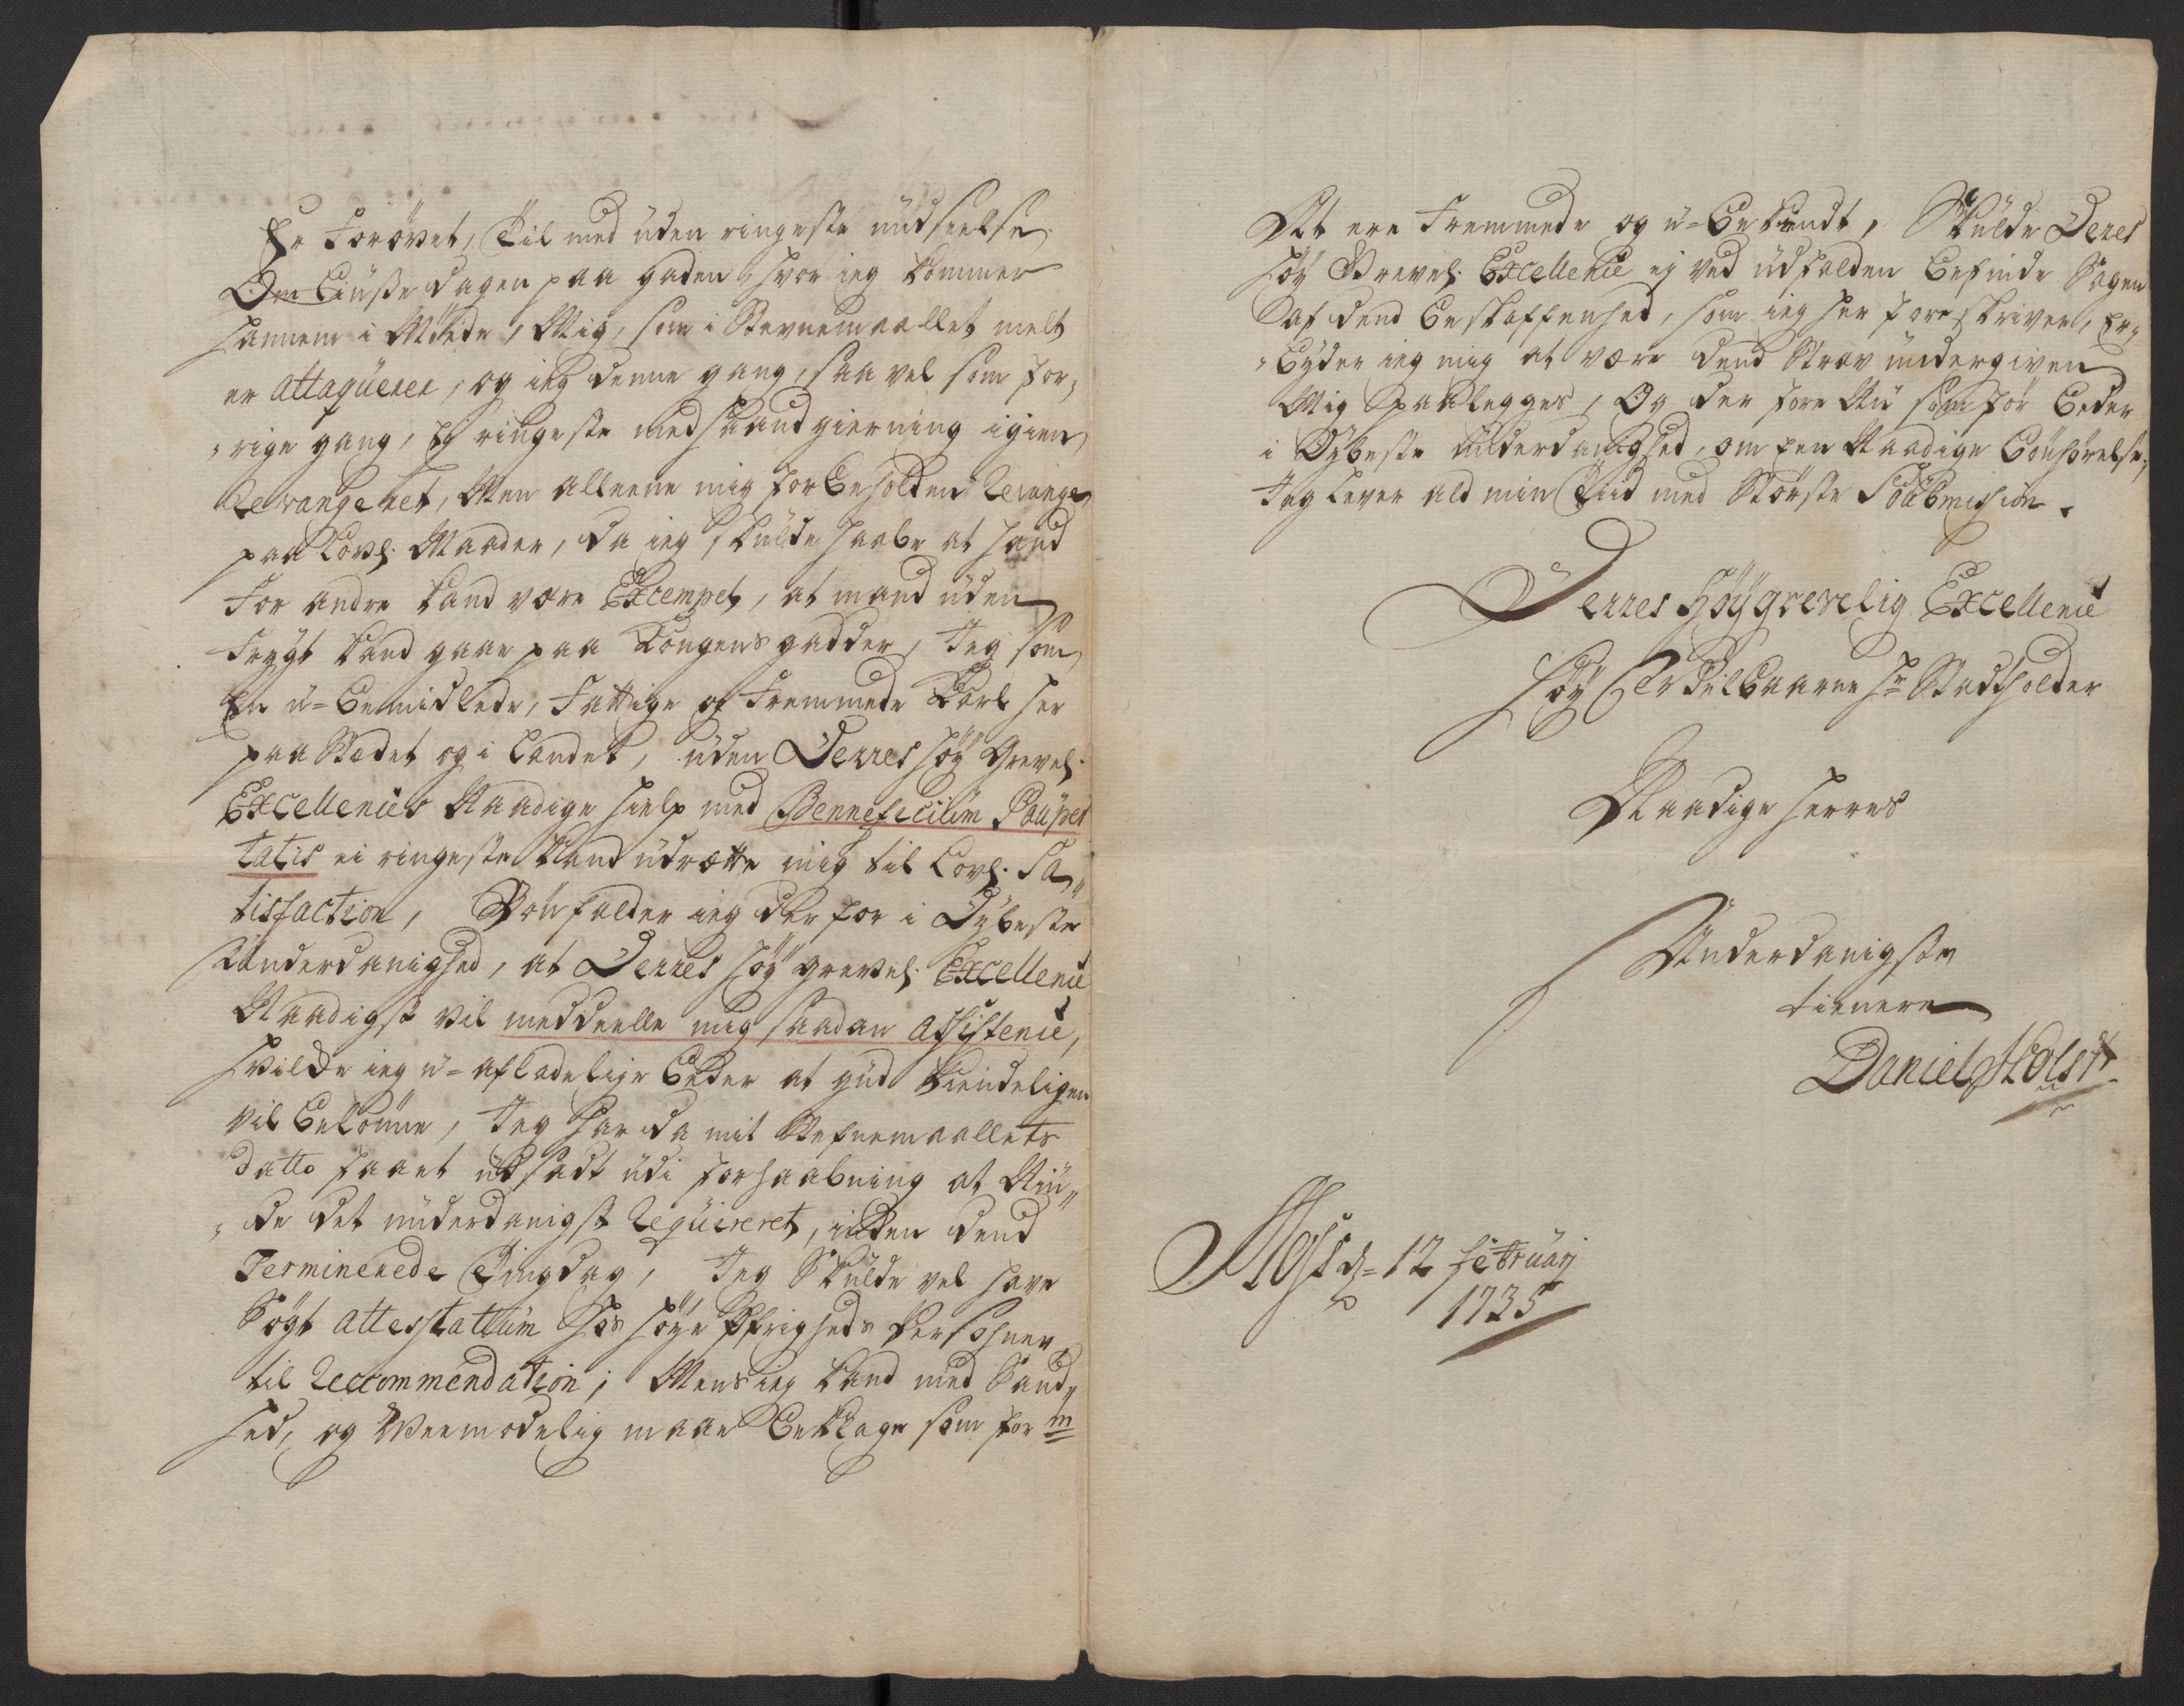 Er Forövet, Til med uden ringeste undseelse
Om liuse dagen paa gaden hvor ieg kommer
hannem i Möede, Mig, som i Stevnemaallet melt
er attaquerer, og ieg denne gang, saa vel som for,
„rige gang, Ey ringeste med haand gierning igien
Revangeret, Men alleene mig forbeholden Revange
paa Lovl. Maader, da ieg skulde haabe at hand
For andre kand være Excempel, at mand uden
Frygt kand gaae paa Kongens gadder, Jeg som
En u-bemidlede, Fattige og Fremmede Karl her
paa Stædet og i Landet, uden Derres höy Grevel.
Excellences Naadige hielp med Benneficium Pauper
tatis ei ringeste kand udrætte mig til Lovl. Sa„
tisfaction, Bönfalder ieg der for i Dybeste
Underdanighed, at Derres höy grevel. Excellence
Naadigst vil meddeelle mig saadan assistence,
hvilde ieg u-afladelige beder at gud kiendeligen
vil belönne, Jeg har da mit Stefnemaallets
datto faaet udsadt udi forhaabning at Niü„
„de det underdanigst Requireret, inden dend
Terminerede Tingdag, Jeg Skulde vel have
Sögt attestatium hos höye Öfrigheds Persohner
til Reccommendation; Mens ieg kand med Sand„
hed, og Veemodelig maae beklage som for m
At ere Fremmede og u-bekiendt, Skulde Deres
höy Grevel. Excellence ej ved udfalden befinde Sagen
af dend beskaffenhed, som ieg her fore skriver, Er„
„byder ieg mig at være dend Strav undergiven
Mig paalegges, Og der fore Nu som för beder
i Dybeste underdanighed, om een Naadige bönhörelse,
Jeg lever ald min Tiid med Störste Soubmission.
Derres Höygrevelig Excellence
höy Velbaarne hr Stadtholder
Naadige herres
Underdanigste
tienere
Daniel Holst
12 februarj
1735